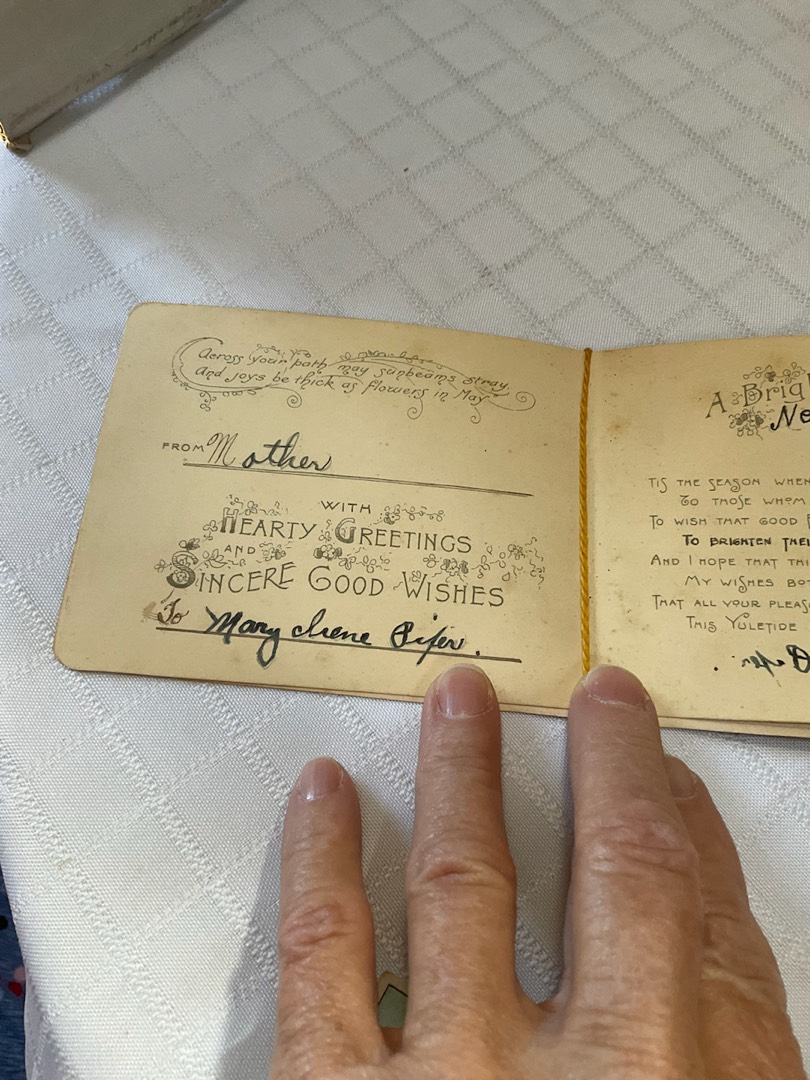 Across your path may sunbeams stray,
And joys be thick as flowers in May
FROM Mother
WITH
HEARTY GREETINGS
AND
SINCERE GOOD WISHES
To Mary Irene Pifer.
A Brig
Ne
TIS THE SEASON WHEN
TO THOSE WHOM
TO WISH THAT GOOD
TO BRIGHTEN THEI
AND I HOPE THAT THI
MY WISHES BOT
THAT ALL YOUR PLEAS
THIS YULETIDE